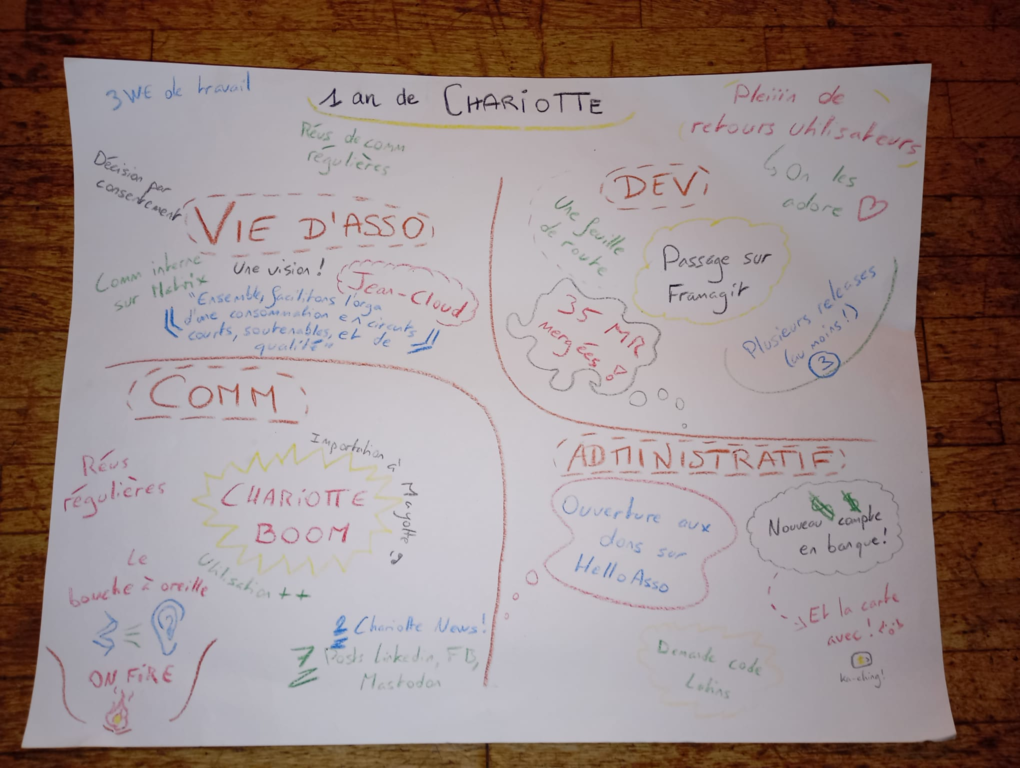 1 an de CHARIOTTE
3 WE de travail
Réus de comm
régulières
Décision par
consentement
VIE D'ASSO
Comm interne
sur Matrix
Une vision !
Jean-Cloud
"Ensemble, facilitons l'orga
d'une consommation en circuits
courts, soutenables, et de
qualité"
DEV
Pleiiin de
retours utilisateurs
↳ On les
adore ♡
Une feuille
de route
Passage sur
Framagit
35 MR
mergées !
Plusieurs releases
(au moins !)
3
COMM
Réus
régulières
CHARIOTTE
BOOM
Importation à
Mayotte ?
Utilisation ++
Le
bouche à oreille
ON FIRE
2 Chariotte News !
7 Posts Linkedin, FB,
Mastodon
ADMINISTRATIF
Ouverture aux
dons sur
HelloAsso
$ $
Nouveau compte
en banque !
Et la carte
avec !
Demande code